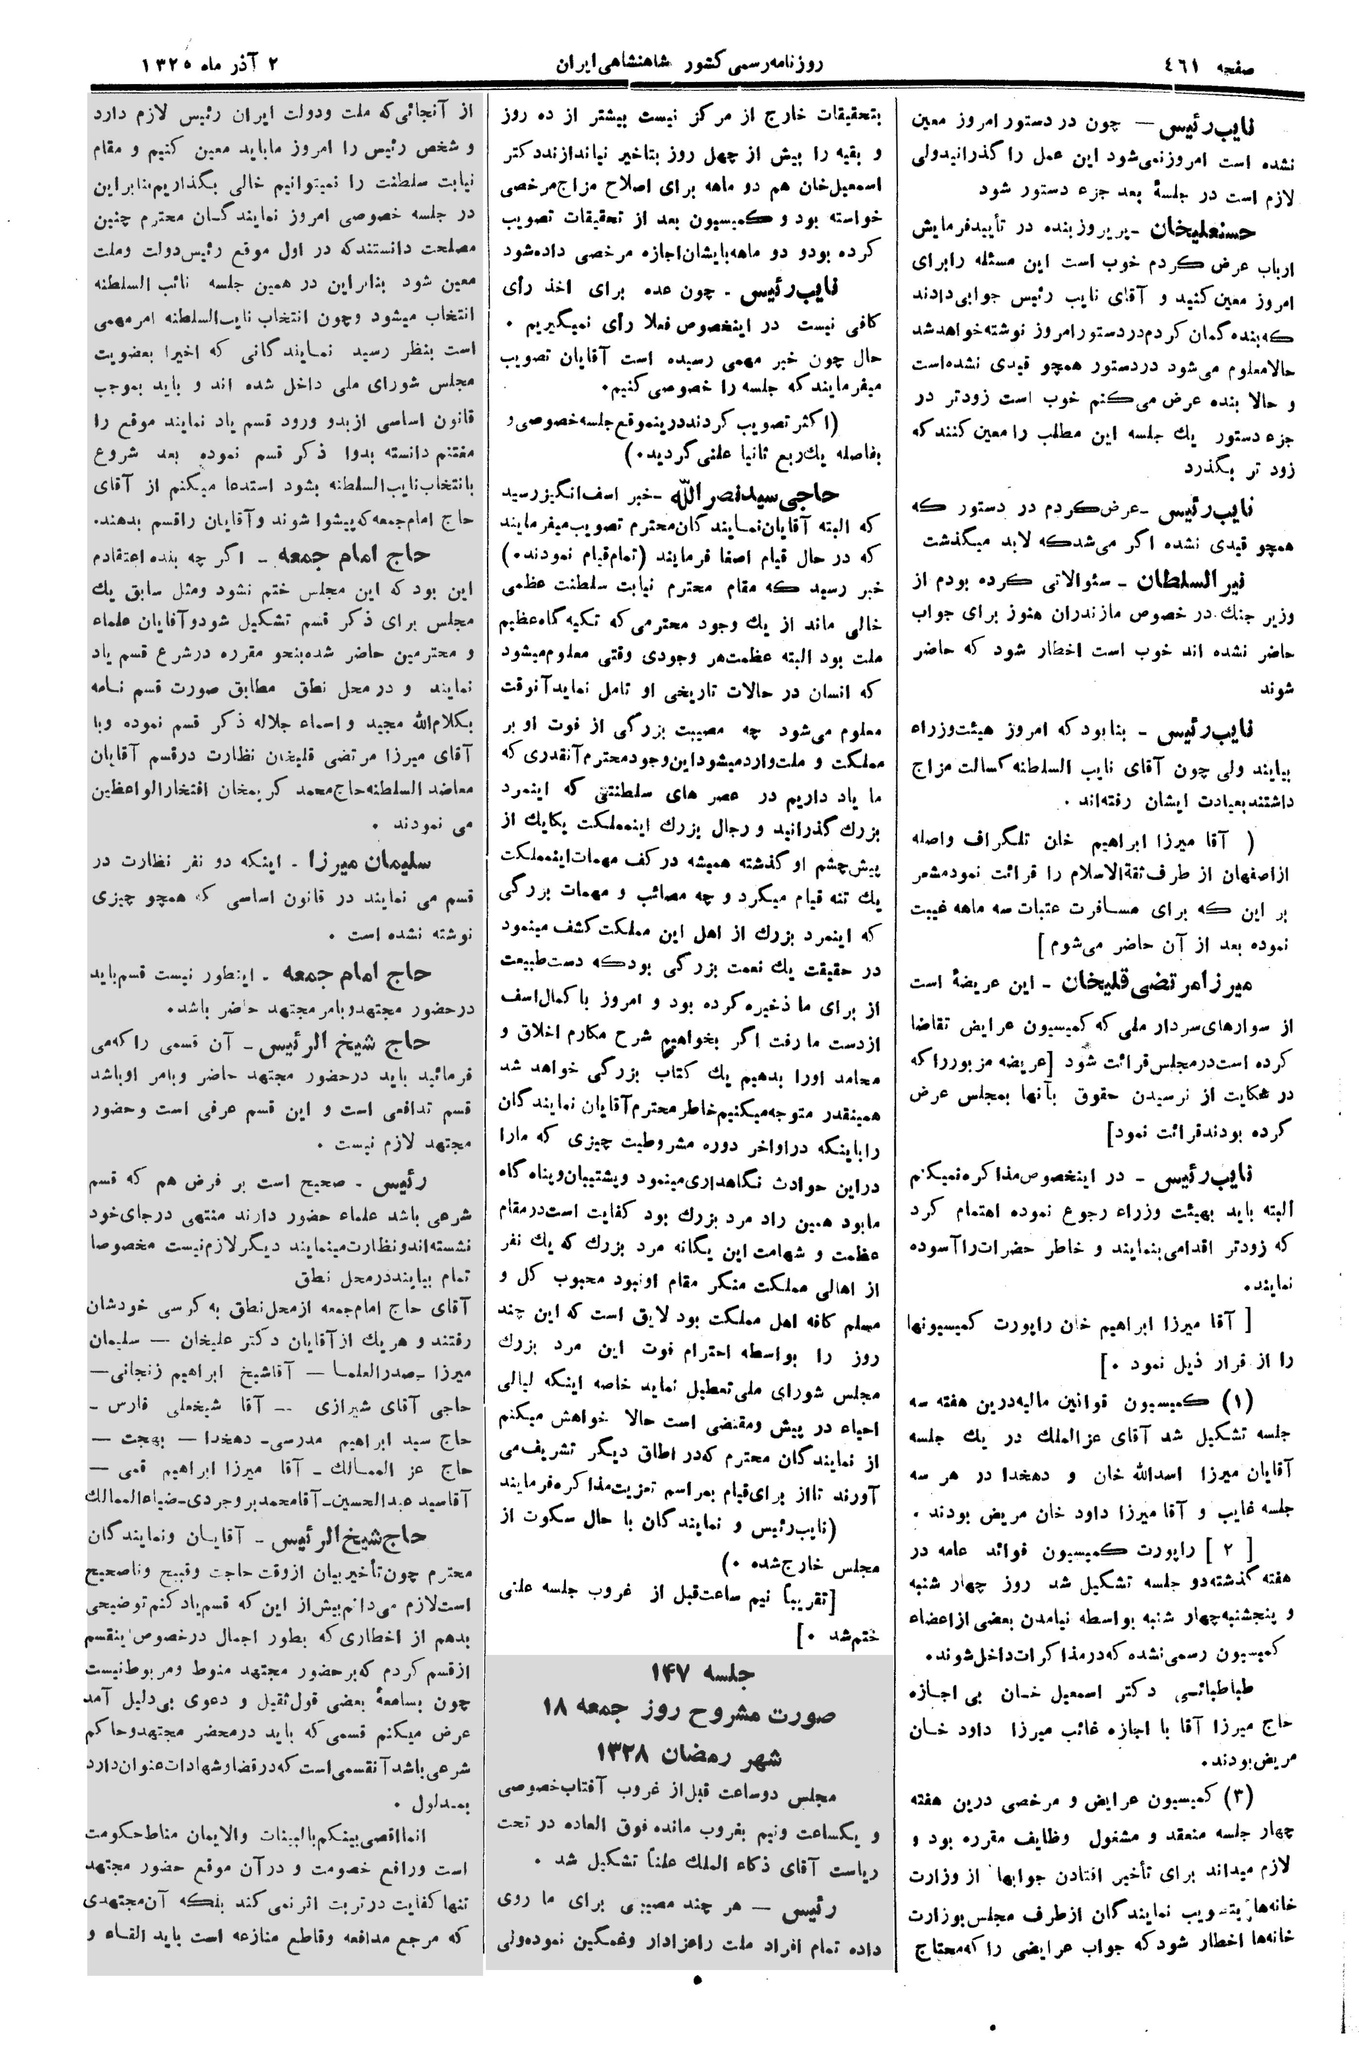 صفحه ٤٦١
روزنامه رسمی کشور شاهنشاهی ایران
۲ آذر ماه ۱۳۲۵
نایب رئیس — چون در دستور امروز معین
نشده است امروز نمی‌شود این عمل را گذرانید ولی
لازم است در جلسهٔ بعد جزء دستور شود
حسنعلیخان - پریروز بنده در تأیید فرمایش
ارباب عرض کردم خوب است این مسئله را برای
امروز معین کنید و آقای نایب رئیس جوابی دادند
که بنده گمان کردم در دستور امروز نوشته خواهد شد
حالا معلوم می‌شود در دستور همچو قیدی نشده است
و حالا بنده عرض می‌کنم خوب است زودتر در
جزء دستور یك جلسه این مطلب را معین کنند که
زود تر بگذرد
نایب رئیس - عرض کردم در دستور که
همچو قیدی نشده اگر می‌شد که لابد میگذشت
نیر السلطان - سئوالاتی کرده بودم از
وزیر جنك در خصوص مازندران هنوز برای جواب
حاضر نشده اند خوب است اخطار شود که حاضر
شوند
نایب رئیس - بنا بود که امروز هیئت وزراء
بیایند ولی چون آقای نایب السلطنه کسالت مزاج
داشتند بعیادت ایشان رفته‌اند .
( آقا میرزا ابراهیم خان تلگراف واصله
از اصفهان از طرف ثقة الاسلام را قرائت نمود مشعر
بر این که برای مسافرت عتبات سه ماهه غیبت
نموده بعد از آن حاضر می‌شوم ]
میرزا مرتضی قلیخان - این عریضهٔ است
از سوارهای سردار ملی که کمیسیون عرایض تقاضا
کرده است در مجلس قرائت شود [عریضه مزبور را که
در شکایت از نرسیدن حقوق بآنها بمجلس عرض
کرده بودند قرائت نمود]
نایب رئیس - در اینخصوص مذاکره نمیکنم
البته باید بهیئت وزراء رجوع نموده اهتمام کرد
که زودتر اقدامی بنمایند و خاطر حضرات را آسوده
نمایند.
[ آقا میرزا ابراهیم خان راپورت کمیسیونها
را از قرار ذیل نمود ۰]
(۱) کمیسیون قوانین مالیه درین هفته سه
جلسه تشکیل شد آقای عزالملك در یك جلسه
آقایان میرزا اسدالله خان و دهخدا در هر سه
جلسه غایب و آقا میرزا داود خان مریض بودند .
[ ۲ ] راپورت کمیسیون فوائد عامه در
هفته گذشته دو جلسه تشکیل شد روز چهار شنبه
و پنجشنبه چهار شنبه بواسطه نیامدن بعضی از اعضاء
کمیسیون رسمی نشده که در مذاکرات داخل شوند.
طباطبائی دکتر اسمعیل خان بی اجازه
حاج میرزا آقا با اجازه غائب میرزا داود خان
مریض بودند.
(۳) کمیسیون عرایض و مرخصی درین هفته
چهار جلسه منعقد و مشغول وظایف مقرره بود و
لازم میداند برای تأخیر افتادن جوابها از وزارت
خانه‌ها بتصویب نمایندگان از طرف مجلس بوزارت
خانه‌ها اخطار شود که جواب عرایضی را که محتاج
بتحقیقات خارج از مرکز نیست بیشتر از ده روز
و بقیه را بیش از چهل روز بتاخیر نیاندازند دکتر
اسمعیل خان هم دو ماهه برای اصلاح مزاج مرخصی
خواسته بود و کمیسیون بعد از تحقیقات تصویب
کرده بود و دو ماهه بایشان اجازه مرخصی داده شود
نایب رئیس - چون عده برای اخذ رأی
کافی نیست در اینخصوص فعلا رأی نمیگیریم .
حال چون خبر مهمی رسیده است آقایان تصویب
میفرمایند که جلسه را خصوصی کنیم.
(اکثر تصویب کردند درینموقع جلسه خصوصی و
بفاصله یك ربع ثانیا علنی گردید.)
حاجی سید نصر الله - خبر اسف انگیز رسید
که البته آقایان نمایندگان محترم تصویب میفرمایند
که در حال قیام اصغا فرمایند (تمام قیام نمودند.)
خبر رسید که مقام محترم نیابت سلطنت عظمی
خالی ماند از یك وجود محترمی که تکیه گاه عظیم
ملت بود البته عظمت هر وجودی وقتی معلوم میشود
که انسان در حالات تاریخی او تامل نماید آنوقت
معلوم می‌شود چه مصیبت بزرگی از فوت او بر
مملکت و ملت وارد میشود این وجود محترم آنقدری که
ما یاد داریم در عصر های سلطنتی که اینمرد
بزرك گذرانید و رجال بزرك اینمملکت یکایك از
پیش چشم او گذشته همیشه در کف مهمات اینمملکت
یك تنه قیام میکرد و چه مصائب و مهمات بزرگی
که اینمرد بزرك از اهل این مملکت کشف مینمود
در حقیقت یك نعمت بزرگی بود که دست طبیعت
از برای ما ذخیره کرده بود و امروز با کمال اسف
از دست ما رفت اگر بخواهیم شرح مکارم اخلاق و
محامد او را بدهیم یك کتاب بزرگی خواهد شد
همینقدر متوجه میکنیم خاطر محترم آقایان نمایندگان
را باینکه در اواخر دوره مشروطیت چیزی که ما را
در این حوادث نگاهداری مینمود و پشتیبان و پناه گاه
ما بود همین راد مرد بزرك بود کفایت است در مقام
عظمت و شهامت این یگانه مرد بزرك که یك نفر
از اهالی مملکت منکر مقام او نبود محبوب کل و
مسلم کافه اهل مملکت بود لایق است که این چند
روز را بواسطه احترام فوت این مرد بزرك
مجلس شورای ملی تعطیل نماید خاصه اینکه لیالی
احیاء در پیش و مقتضی است حالا خواهش میکنم
از نمایندگان محترم که در اطاق دیگر تشریف می
آورند تا از برای قیام بمراسم تعزیت مذاکره فرمایند
(نایب رئیس و نمایندگان با حال سکوت از
مجلس خارج شده ۰)
[تقریباً نیم ساعت قبل از غروب جلسه علنی
ختم شد ۰]
جلسه ۱۴۷
صورت مشروح روز جمعه ۱۸
شهر رمضان ۱۳۲۸
مجلس دو ساعت قبل از غروب آفتاب خصوصی
و یکساعت و نیم بغروب مانده فوق العاده در تحت
ریاست آقای ذکاء الملك علناً تشکیل شد .
رئیس — هر چند مصیبتی برای ما روی
داده تمام افراد ملت را عزادار و غمگین نموده ولی
از آنجائی که ملت و دولت ایران رئیس لازم دارد
و شخص رئیس را امروز ما باید معین کنیم و مقام
نیابت سلطنت را نمیتوانیم خالی بگذاریم بنابراین
در جلسه خصوصی امروز نمایندگان محترم چنین
مصلحت دانستند که در اول موقع رئیس دولت و ملت
معین شود بنابراین در همین جلسه نائب السلطنه
انتخاب میشود و چون انتخاب نایب السلطنه امر مهمی
است بنظر رسید نمایندگانی که اخیرا بعضویت
مجلس شورای ملی داخل شده اند و باید بموجب
قانون اساسی از بدو ورود قسم یاد نمایند موقع را
مغتنم دانسته بدوا ذکر قسم نموده بعد شروع
بانتخاب نایب السلطنه بشود استدعا میکنم از آقای
حاج امام جمعه که پیشوا شوند و آقایان را قسم بدهند.
حاج امام جمعه - اگر چه بنده اعتقادم
این بود که این مجلس ختم نشود و مثل سابق یك
مجلس برای ذکر قسم تشکیل شود و آقایان علماء
و محترمین حاضر شده بنحو مقرره در شرع قسم یاد
نمایند و در محل نطق مطابق صورت قسم نامه
بکلام الله مجید و اسماء جلاله ذکر قسم نموده و با
آقای میرزا مرتضی قلیخان نظارت در قسم آقایان
معاضد السلطنه حاج محمد کریمخان افتخار الواعظین
می نمودند .
سلیمان میرزا - اینکه دو نفر نظارت در
قسم می نمایند در قانون اساسی که همچو چیزی
نوشته نشده است .
حاج امام جمعه - اینطور نیست قسم باید
در حضور مجتهد و بامر مجتهد حاضر باشد.
حاج شیخ الرئیس - آن قسمی را که می
فرمائید باید در حضور مجتهد حاضر و بامر او باشد
قسم تدافعی است و این قسم عرفی است و حضور
مجتهد لازم نیست .
رئیس - صحیح است بر فرض هم که قسم
شرعی باشد علماء حضور دارند منتهی در جای خود
نشسته‌اند و نظارت مینمایند دیگر لازم نیست مخصوصا
تمام بیایند در محل نطق
آقای حاج امام جمعه از محل نطق به کرسی خودشان
رفتند و هر یك از آقایان دکتر علیخان — سلیمان
میرزا - صدر العلما — آقا شیخ ابراهیم زنجانی —
حاجی آقای شیرازی - آقا شیخعلی فارس -
حاج سید ابراهیم مدرسی - دهخدا — بهجت —
حاج عز الممالك - آقا میرزا ابراهیم قمی —
آقا سید عبدالحسین - آقا محمد بروجردی - ضیاء الممالك
حاج شیخ الرئیس - آقایان و نمایندگان
محترم چون تأخیر بیان از وقت حاجت و قبیح و ناصحیح
است لازم می‌دانم پیش از این که قسم یاد کنم توضیحی
بدهم از اخطاری که بطور اجمال در خصوص اینقسم
از قسم کردم که بر حضور مجتهد منوط و مربوط نیست
چون بسامعهٔ بعضی قول ثقیل و دعوی بی دلیل آمد
عرض میکنم قسمی که باید در محضر مجتهد و حاکم
شرعی باشد آنقسمی است که در قضا و شهادات عنوان دارد
بمدلول .
انما اقصی بینکم بالبینات والایمان مناط حکومت
است و رافع خصومت و در آن موقع حضور مجتهد
تنها کفایت در تربت اثر نمی کند بلکه آن مجتهدی
که مرجع مدافعه و قاطع منازعه است باید القاء و